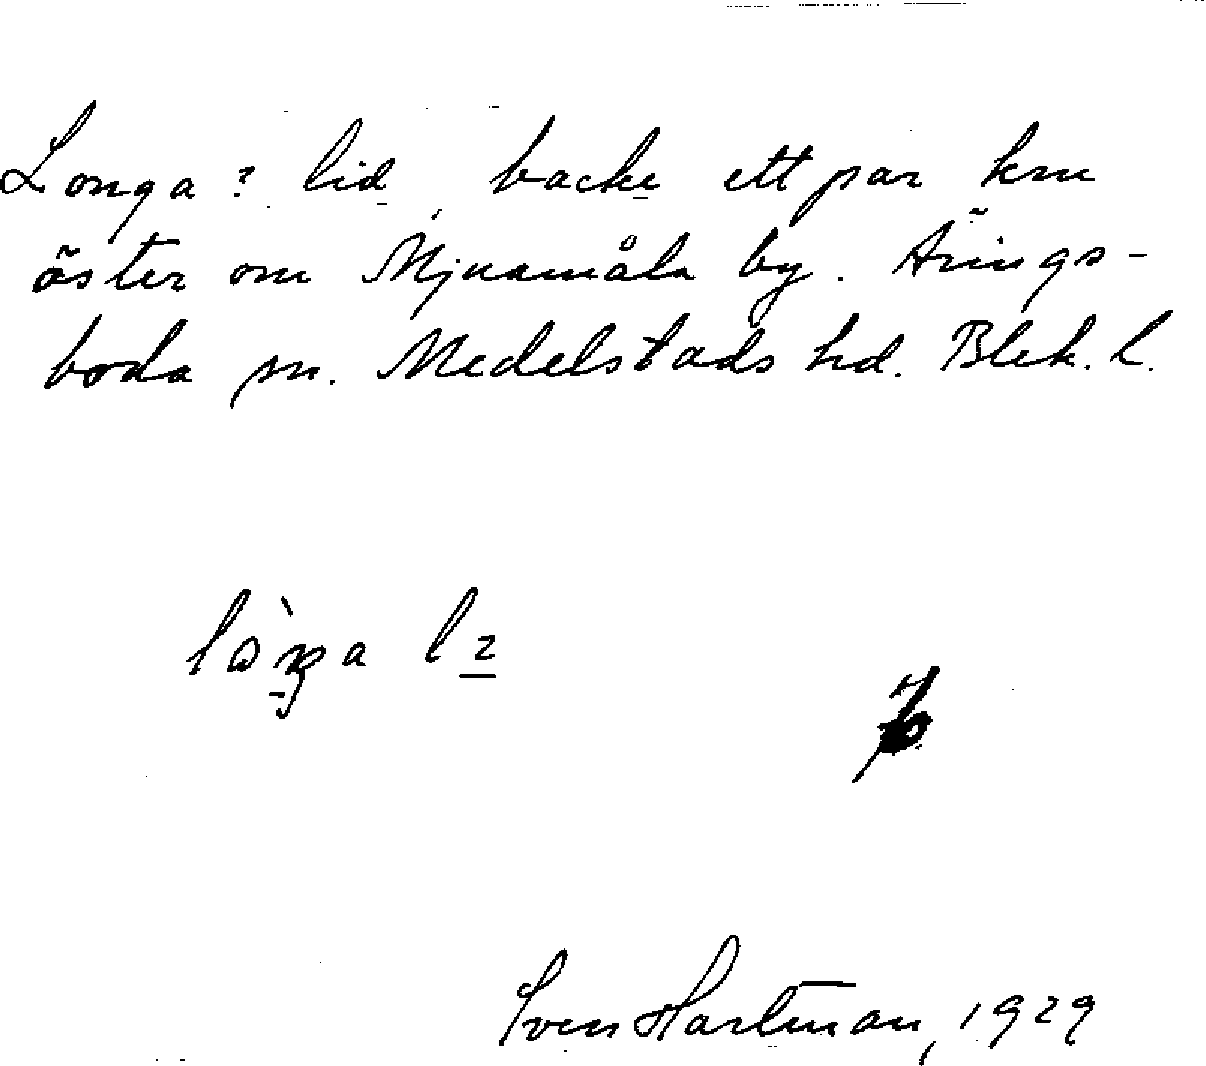 Longa? lid, backe ett par km
öster om Mjuamåla by. Ärings-
boda sn. Medelstads hd. Blek. l.
Sven Hartman, 1929